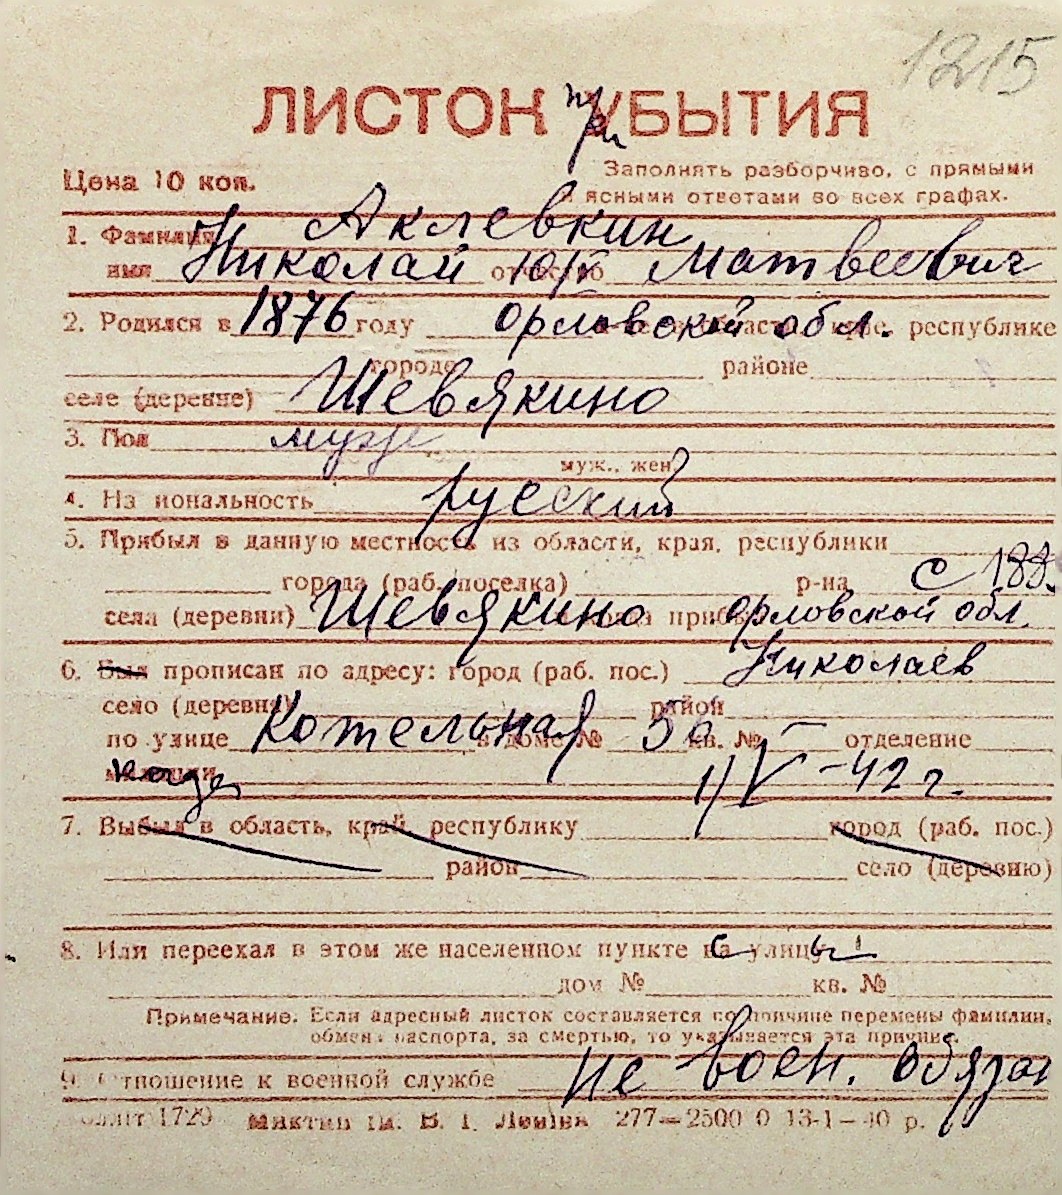 1215
ЛИСТОК при УБЫТИЯ
Цена 10 коп.
Заполнять разборчиво, с прямыми
и ясными ответами во всех графах.
1. Фамилия Аклевкин
имя Николай отчество Матвеевич
2. Родился в 1876 году Орловской обл. области, крае, республике
городе районе
селе (деревне) Шевякино
3. Пол муж
муж., жен.
4. Национальность русский
5. Прибыл в данную местность из области, края, республики
города (раб. поселка) р-на с 188
села (деревни) Шевякино когда прибыл Орловской обл.
6. Был прописан по адресу: город (раб. пос.) Николаев
село (деревня) район
по улице Котельная в доме № 5а кв. № — отделение
милиции когда 1/V – 42 г.
7. Выбыл в область, край, республику город (раб. пос.)
район село (деревню)
8. Или переехал в этом же населенном пункте на с улицу ы
дом № кв. №
Примечание. Если адресный листок составляется по причине перемены фамилии,
обмена паспорта, за смертью, то указывается эта причина.
9. Отношение к военной службе не воен. обязан
1729 В. І. Леніна 277—2500 0 13-1—40 р.